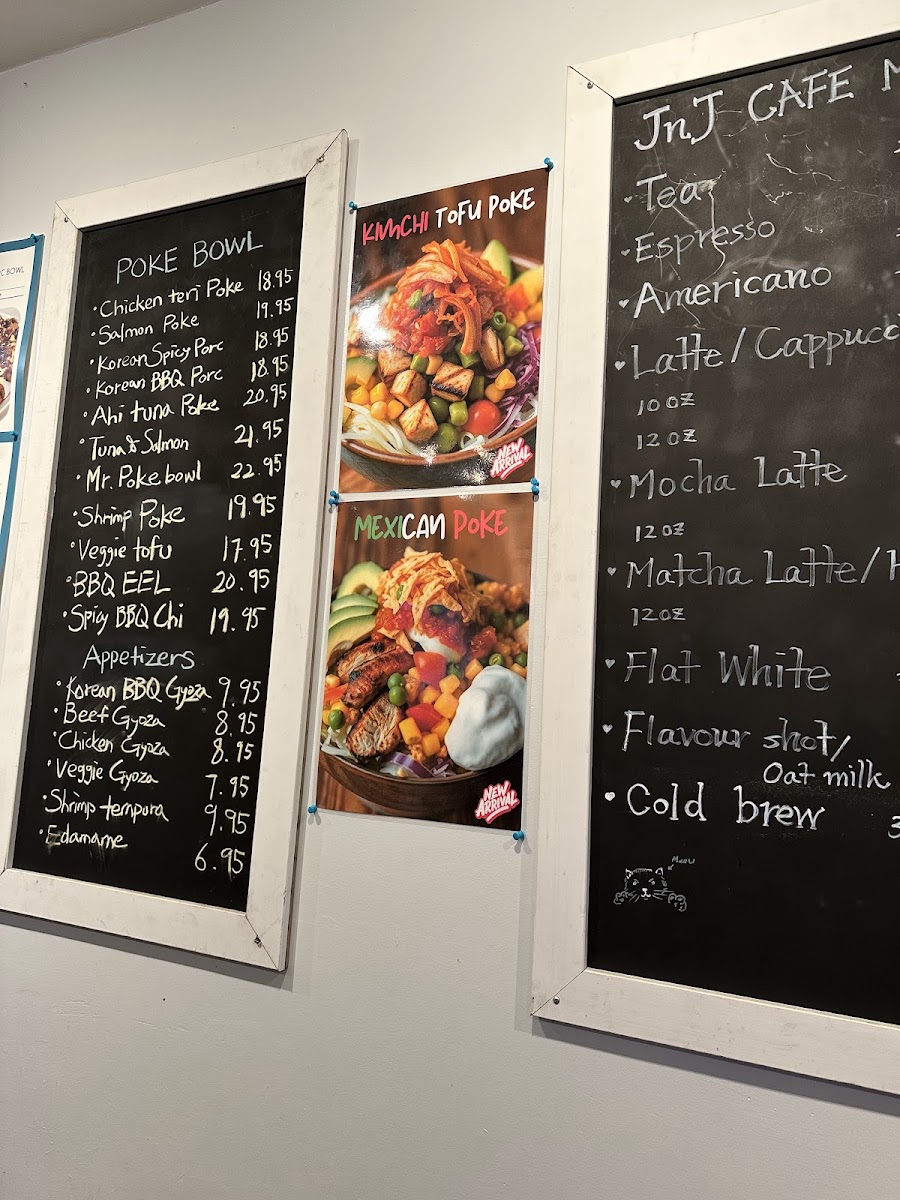 C BOWL
POKE BOWL
• Chicken teri Poke 18.95
• Salmon Poke 19.95
• Korean Spicy Porc 18.95
• Korean BBQ Porc 18.95
• Ahi tuna Poke 20.95
• Tuna & Salmon 21.95
• Mr. Poke bowl 22.95
• Shrimp Poke 19.95
• Veggie tofu 17.95
• BBQ EEL 20.95
• Spicy BBQ Chi 19.95
Appetizers
• Korean BBQ Gyoza 9.95
• Beef Gyoza 8.95
• Chicken Gyoza 8.95
• Veggie Gyoza 7.95
• Shrimp tempora 9.95
• Edamame 6.95
KIMCHI TOFU POKE
NEW ARRIVAL
MEXICAN POKE
NEW ARRIVAL
JnJ CAFE M
• Tea
• Espresso
♥ Americano
♥ Latte / Cappucc
10 oz
12 oz
♥ Mocha Latte
12 oz
♥ Matcha Latte / H
12 oz
♥ Flat White
♥ Flavour shot /
Oat milk
♥ Cold brew 3
Meow